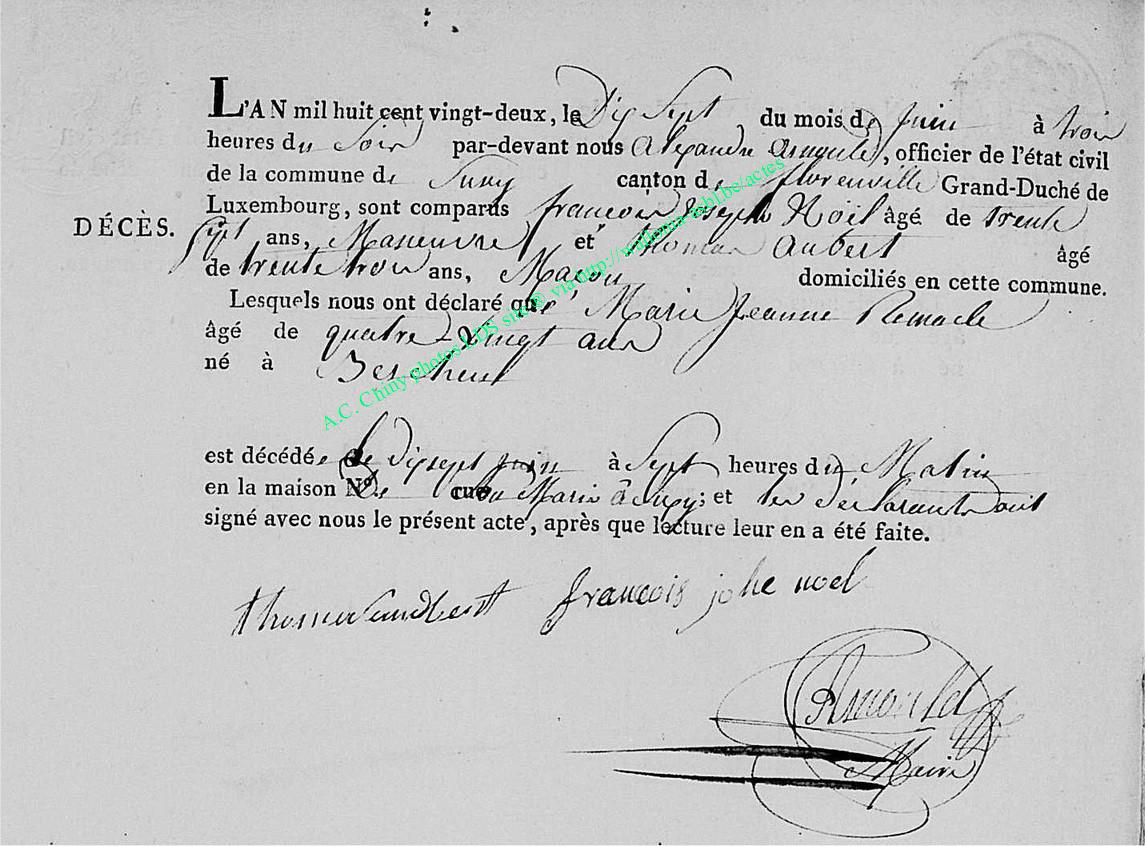 L'AN mil huit cent vingt-deux, le Dix Sept du mois de Juin à trois
heures du Soir par-devant nous Alexandre Arnould, officier de l'état civil
de la commune de Suxy canton de florenville Grand-Duché de
Luxembourg, sont comparus francois Joseph Noël âgé de trente
DÉCÈS.
Sept ans, Maneuvre et thomas Aubert âgé
de trente trois ans, Maçon domiciliés en cette commune.
Lesquels nous ont déclaré que Marie Jeanne Remacle
âgé de quatre vingt ans
né à
est décédée le dix sept Juin à Sept heures du Matin
en la maison à Suxy; et les déclarants ont
signé avec nous le présent acte, après que lecture leur en a été faite.
francois noel
Arnould
Maire
A.C. Chiny photos LDS sur via